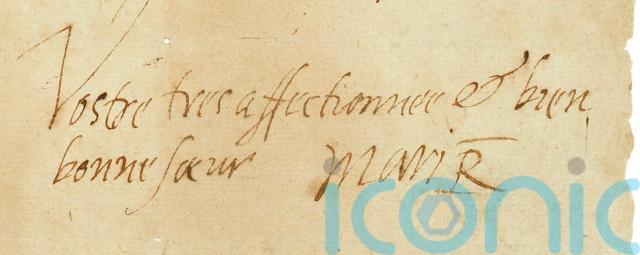 Vostre tres affectionnee & bien
bonne sœur Mari R
iconic